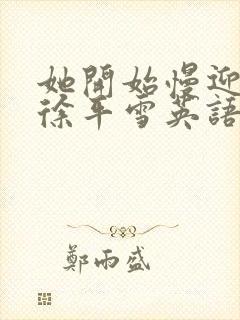 她開始慢迎
徐平雪英語
鄭雨盛